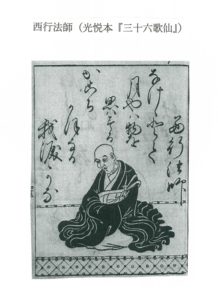 西行法師（光悦本『三十六歌仙』）
西行法師
なけゝとて
月やハ物を
思ハする
かこち
かほなる
我涙かな